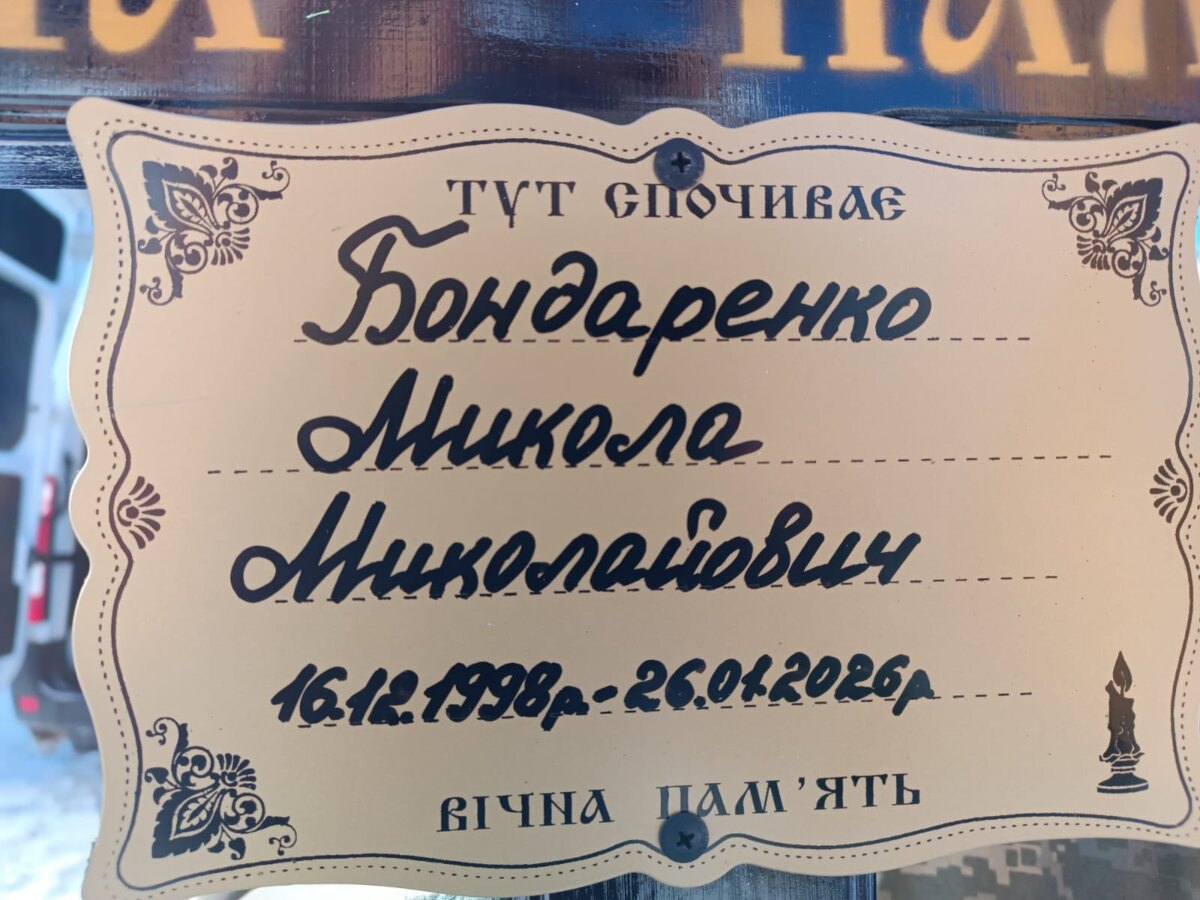 ТУТ СПОЧИВАЄ
Бондаренко
Микола
Миколайович
16.12.1998р.-26.01.2026р
ВІЧНА ПАМ'ЯТЬ